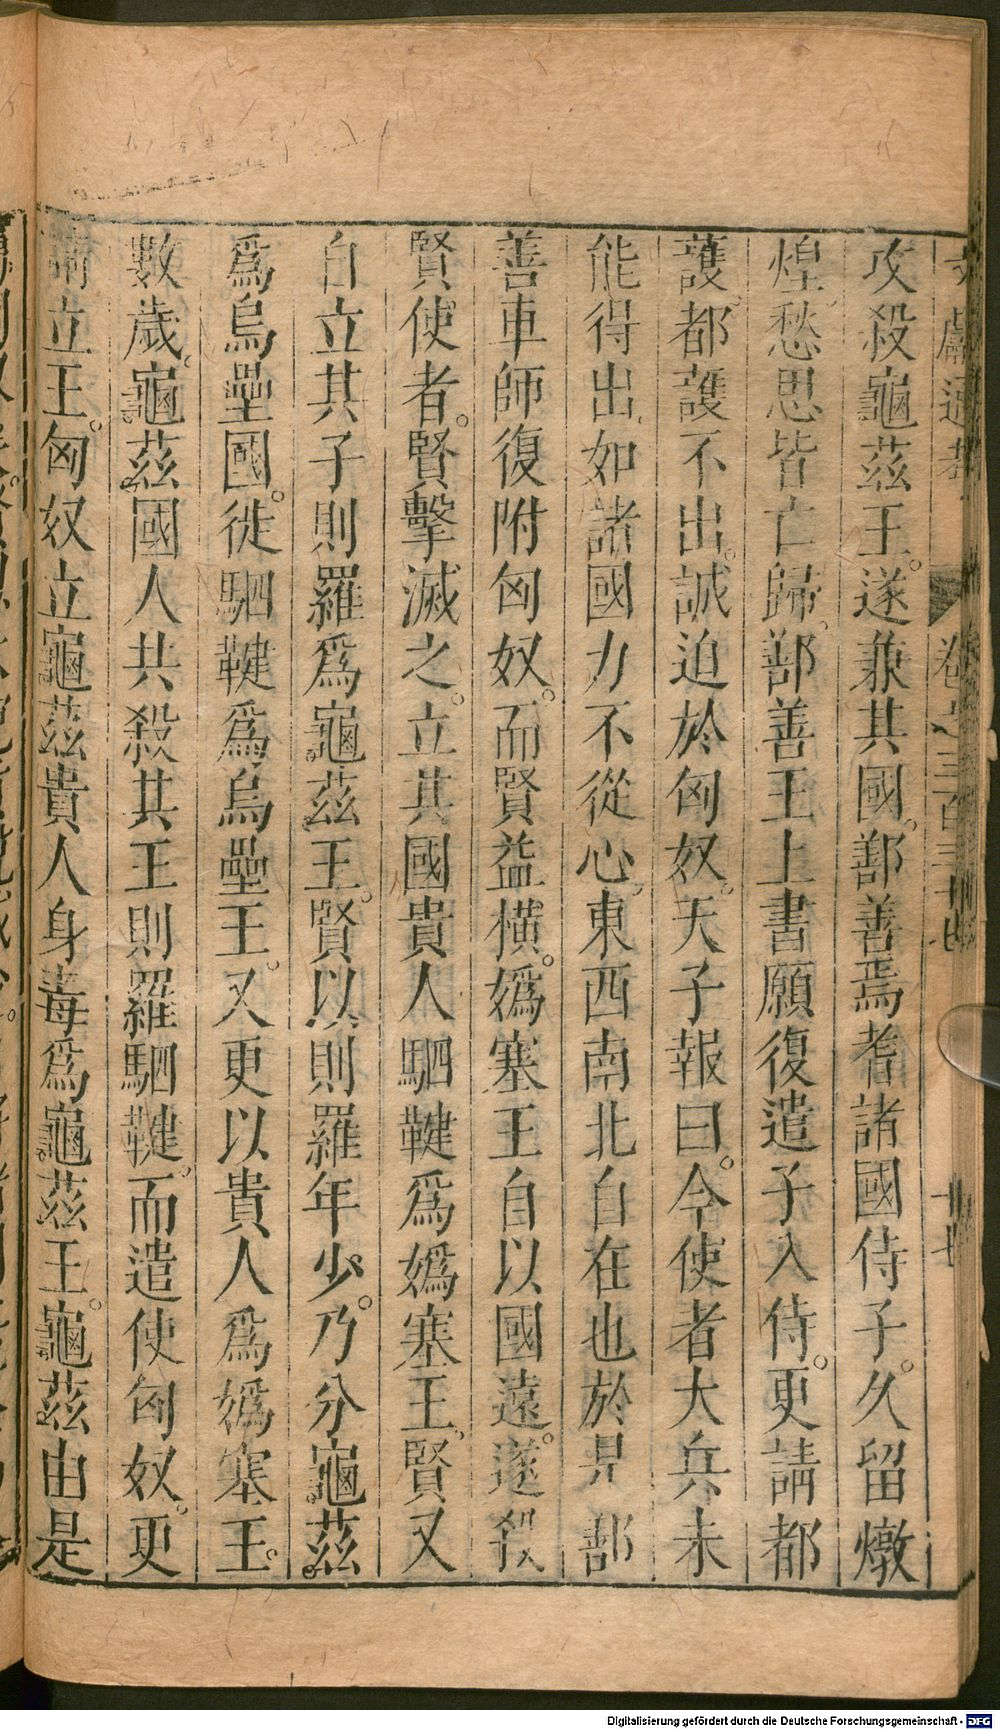 攻殺龜茲王。遂兼其國。鄯善焉耆諸國侍子。久留燉
煌。愁思皆亡歸。鄯善王上書願復遣子入侍。更請都
護。都護不出。誠迫於匈奴。天子報曰。今使者大兵未
能得出。如諸國力不從心。東西南北自在也於是鄯
善車師復附匈奴。而賢益橫。嬀塞王自以國遠。遂殺
賢使者。賢擊滅之。立其國貴人駟鞬爲嬀塞王。賢又
自立其子則羅爲龜茲王。賢以則羅年少。乃分龜茲
爲烏壘國。徙駟鞬爲烏壘王。又更以貴人爲嬀塞王。
數歲。龜茲國人共殺其王則羅駟鞬。而遣使匈奴。更
請立王。匈奴立龜茲貴人身毒爲龜茲王。龜茲由是
卷之三百三十
Digitalisierung gefördert durch die Deutsche Forschungsgemeinschaft - DFG